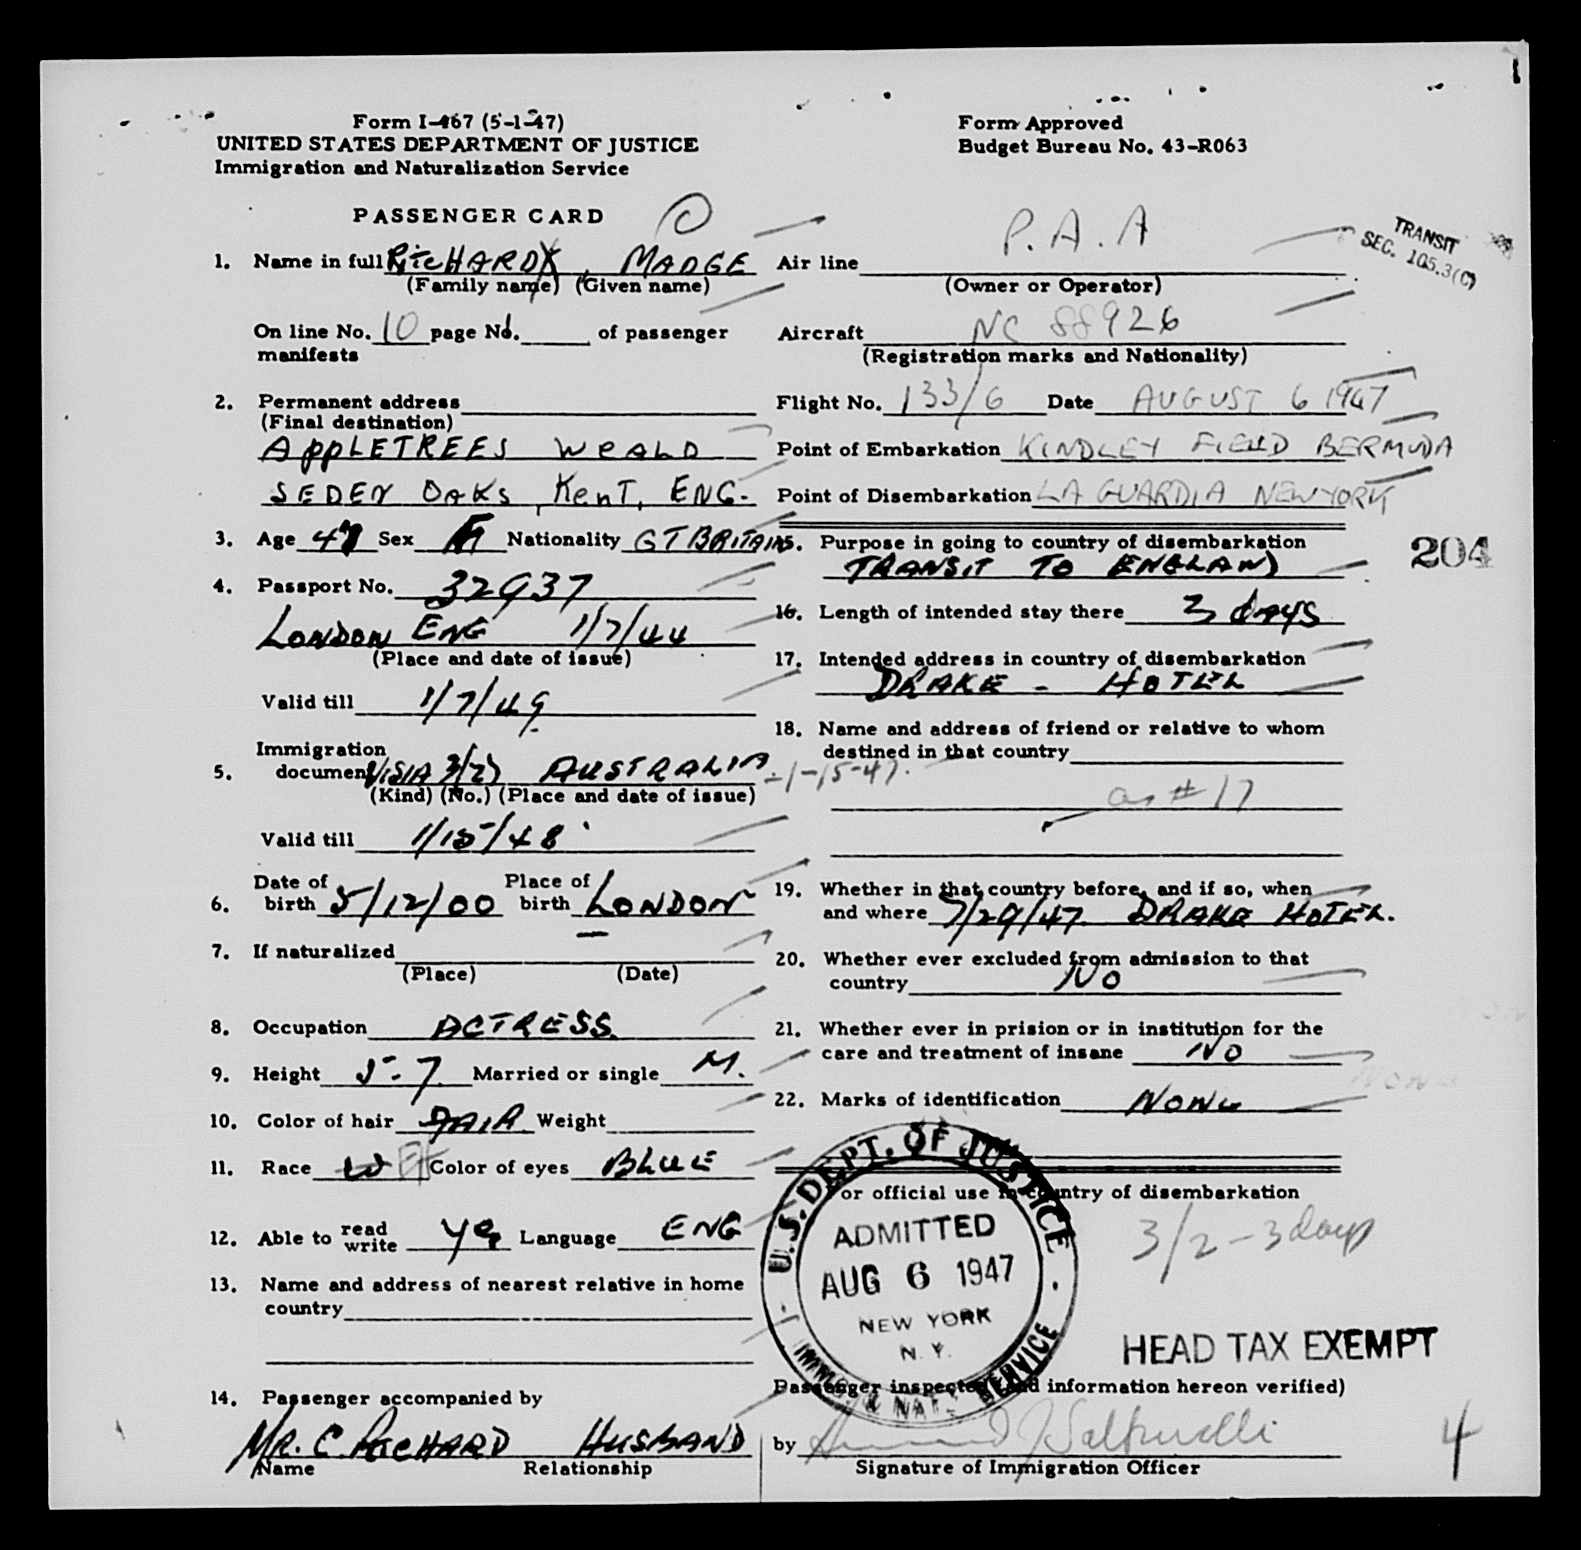 Form I-467 (5-1-47)
UNITED STATES DEPARTMENT OF JUSTICE
Immigration and Naturalization Service
Form Approved
Budget Bureau No. 43-R063
PASSENGER CARD
TRANSIT
SEC. 105.3(C)
1. Name in full RICHARD, MADGE
(Family name) (Given name)
On line No. 10 page No. 1 of passenger
manifests
2. Permanent address
(Final destination)
APPLETREES WEALD
SEDEN OAKS, KENT, ENG.
3. Age 47 Sex F Nationality GT BRITAIN
4. Passport No. 32937
LONDON ENG 1/7/44
(Place and date of issue)
Valid till 1/7/49
5. Immigration
document VISIA 3/2) AUSTRALIA -1-15-47.
(Kind) (No.) (Place and date of issue)
Valid till 1/15/48
6. Date of birth 5/12/00 Place of birth LONDON
7. If naturalized
(Place) (Date)
8. Occupation ACTRESS
9. Height 5-7 Married or single M.
10. Color of hair FAIR Weight
11. Race W Color of eyes BLUE
12. Able to read write yes Language ENG
13. Name and address of nearest relative in home
country
14. Passenger accompanied by
MR. C. RICHARD HUSBAND
Name Relationship
Air line P.A.A
(Owner or Operator)
Aircraft NC 88926
(Registration marks and Nationality)
Flight No. 133/6 Date AUGUST 6 1947
Point of Embarkation KINDLEY FIELD BERMUDA
Point of Disembarkation LA GUARDIA NEW YORK
15. Purpose in going to country of disembarkation
TRANSIT TO ENGLAND
204
16. Length of intended stay there 3 days
17. Intended address in country of disembarkation
DRAKE - HOTEL
18. Name and address of friend or relative to whom
destined in that country
as # 17
19. Whether in that country before, and if so, when
and where 7/29/47 DRAKE HOTEL.
20. Whether ever excluded from admission to that
country NO
21. Whether ever in prision or in institution for the
care and treatment of insane NO
22. Marks of identification NONE
For official use in country of disembarkation
U.S. DEPT. OF JUSTICE
ADMITTED
AUG 6 1947
NEW YORK
N.Y.
IMMG. & NAT. SERVICE
3/2 - 3 days
HEAD TAX EXEMPT
Passenger inspected (and information hereon verified)
by
Signature of Immigration Officer
4